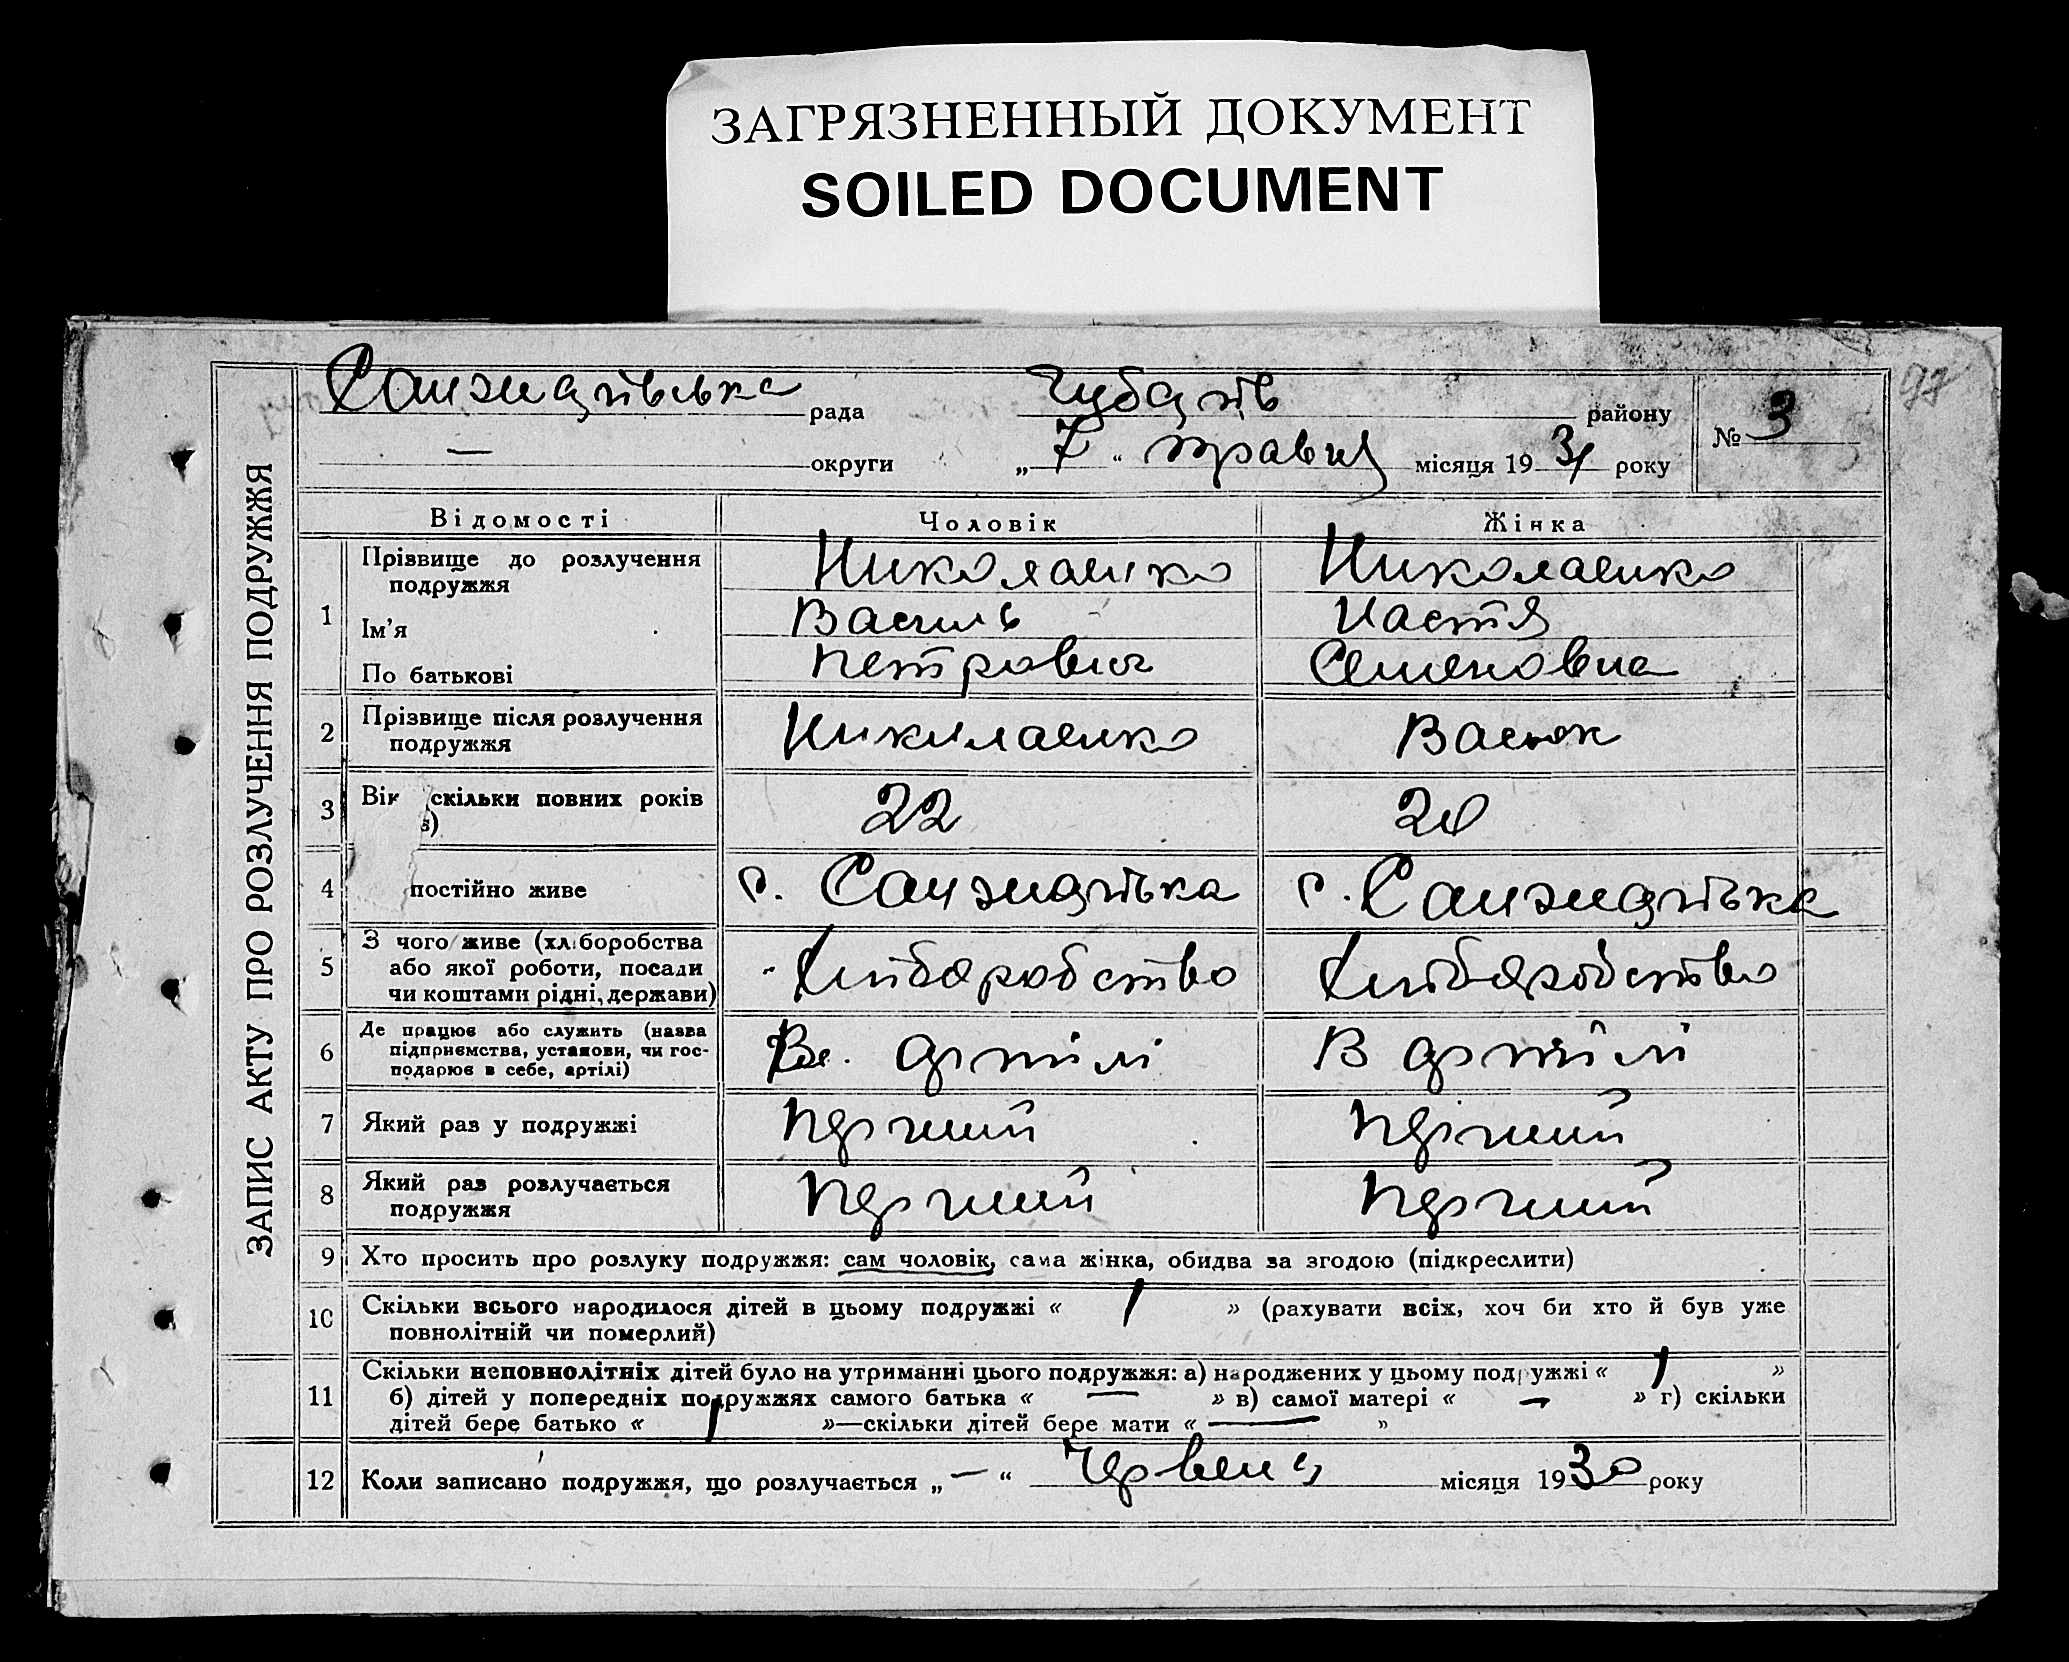 ЗАГРЯЗНЕННЫЙ ДОКУМЕНТ
SOILED DOCUMENT
Санжарівська рада Чубарів району № 3
— округи „ 7 “ травня місяця 19 31 року
ЗАПИС АКТУ ПРО РОЗЛУЧЕННЯ ПОДРУЖЖЯ
Відомості Чоловік Жінка
1 Прізвище до розлучення подружжя Николаенко Николаенко
Ім'я Василь Настя
По батькові Петрович Семеновна
2 Прізвище після розлучення подружжя Николаенко Васюк
3 Вік скільки повних років в) 22 20
4 постійно живе с. Санжарівка с. Санжарівка
5 З чого живе (хліборобства або якої роботи, посади чи коштами рідні, держави) Хліборобство Хліборобство
6 Де працює або служить (назва підприємства, установи, чи господарює в себе, артілі) В артілі В артілі
7 Який раз у подружжі перший перший
8 Який раз розлучається подружжя перший перший
9 Хто просить про розлуку подружжя: сам чоловік, сама жінка, обидва за згодою (підкреслити)
10 Скільки всього народилося дітей в цьому подружжі « 1 » (рахувати всіх, хоч би хто й був уже
повнолітній чи померлий)
11 Скільки неповнолітніх дітей було на утриманні цього подружжя: а) народжених у цьому подружжі « 1 »
б) дітей у попередніх подружжях самого батька « — » в) самої матері « — » г) скільки
дітей бере батько « 1 »—скільки дітей бере мати « — »
12 Коли записано подружжя, що розлучається „ — “ Червня місяця 19 30 року